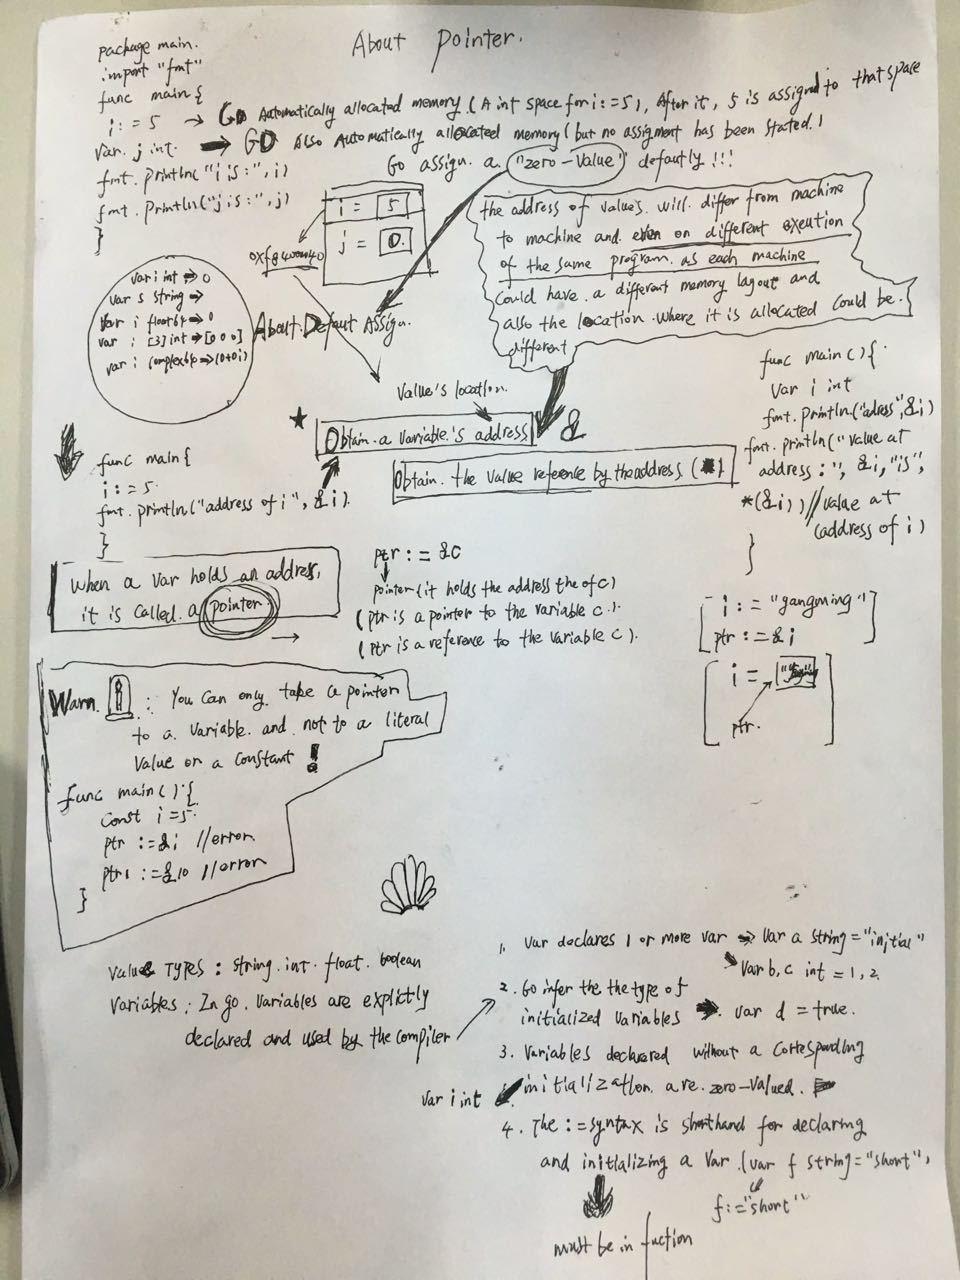 About pointer.
package main.
import "fmt"
func main{
i := 5 → GO Automatically allocated memory (A int space for i:=5), After it, 5 is assigned to that space
var. j int. → GO Also Automatically allocated memory (but no assigment has been stated.)
Go assign. a. "zero-value" defautly !!!
fmt.println("i is:", i)
fmt.println("j is:", j)
}
i = 5
j = 0.
the address of value's. will. differ from machine
to machine and. even on different exeution
of the same program. as each machine
could have. a different memory layout and
also the location. where it is allocated could be.
different
var i int → 0
var s string →
var i float64 → 0
var i [3]int → [0 0 0]
var i complex64 → (0+0i)
About. Defaut Assign.
Value's location.
Obtain. a variable's address &
Obtain. the value reference by the address (*)
func main{
i := 5.
fmt.println("address of i", &i).
}
func main(){
var i int
fmt.println("adress", &i)
fmt.println("value at
address:", &i, "is",
*(&i)) //value at
(address of i)
}
when a var holds an address,
it is called. a pointer.
→
ptr := &c
pointer (it holds the address the of c)
(ptr is a pointer to the variable c.).
(ptr is a reference to the variable c).
i := "gangming"
ptr := &i
i =
ptr.
Warn. : You can only take a pointer
to a variable. and not to a literal
value or a constant !
func main() {
const i = 5.
ptr := &i //error.
ptr1 := &10 //error
}
Value TYPES : string. int. float. boolean
Variables : In go. variables are explictly
declared and used by the compiler
1. var declares 1 or more var → var a string = "initial"
var b, c int = 1, 2.
2. Go infer the the type of
initialized variables → var d = true.
3. Variables declared without a corresponding
initialization. are. zero-valued.
var i int
4. The := syntax is shorthand for declaring
and initializing a var. (var f string = "short",
f := "short"
must be in fuction